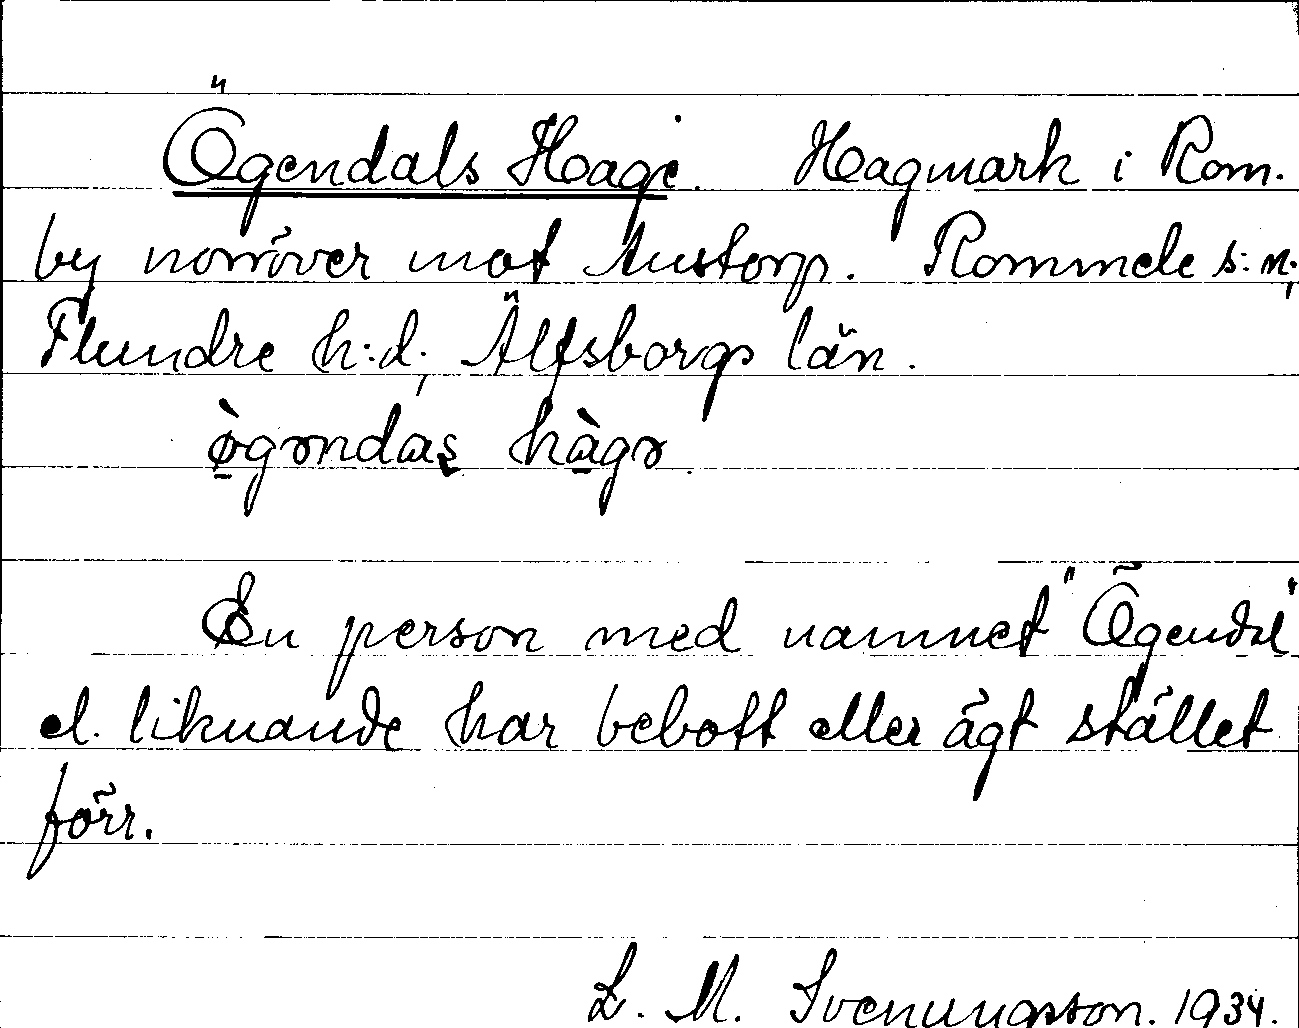 Ögendals Hage. Hagmark i Rom.
by norröver mot Austorp. Rommele s:n;
Flundre h:d; Älfsborgs län.
ø̀gəndaʂ hàgə.
En person med namnet "Ögendal"
el. liknande har bebott eller ägt stället
förr.
L. M. Svenungsson. 1934.